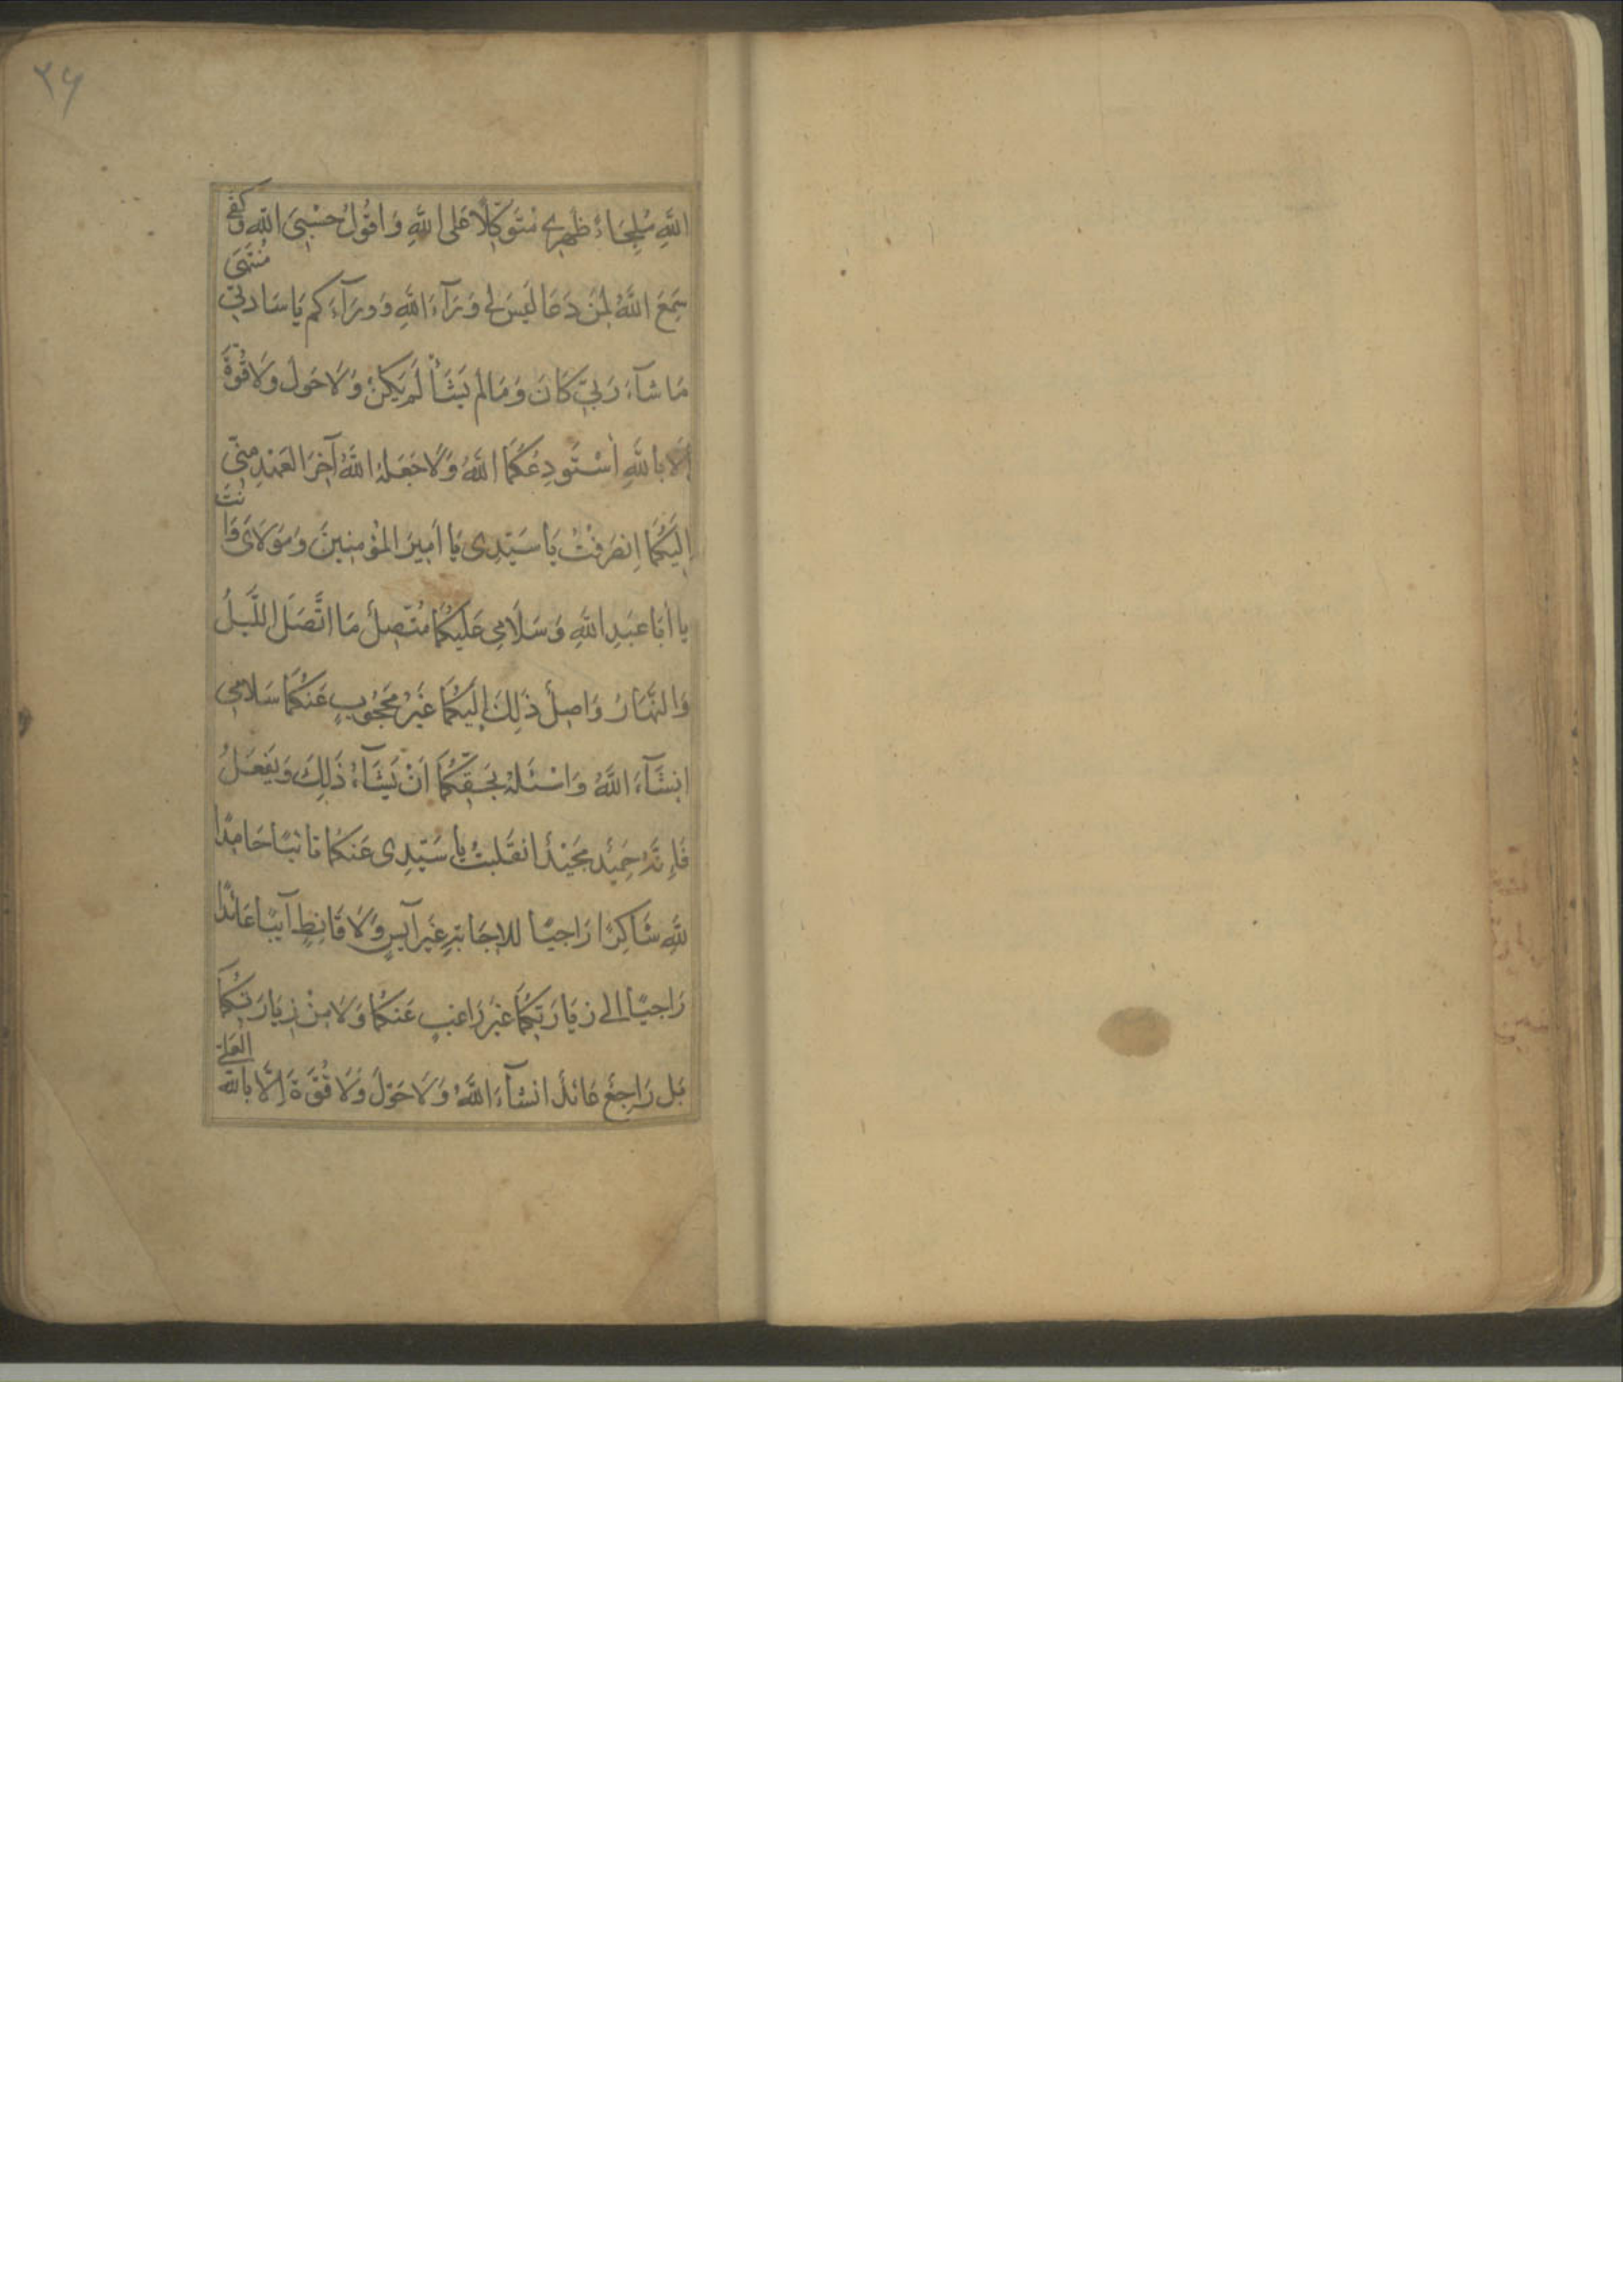 ٢۶
اللَّهِ مُلْجِاءً ظَهْرِي مُتَوَكِّلًا عَلَى اللَّهِ وَاَقُولُ حَسْبِيَ اللَّهِ وَكَفَى
سَمِعَ اللَّهُ لِمَنْ دَعَا لَيْسَ لِي وَرَآءَ اللَّهِ وَ وَرَآءَكُم يَا سَادَتِي مُنْتَهَى
مَا شَآءَ رَبِّي كَانَ وَمَا لَمْ يَشَأْ لَمْ يَكُنْ وَلَا حَوْلَ وَلَا قُوَّةَ
اِلَّا بِاللَّهِ اَسْتَودِعُكُمَا اللَّهَ وَلَا جَعَلَهُ اللَّهُ آخِرَ الْعَهْدِ مِنِّي
اِلَيْكُمَا اِنْصَرَفْتُ يَا سَيِّدِى يَا اَمِيرَ الْمُؤْمِنِينَ وَمَوْلَاىَ وَاَنْتَ
يَا اَبَا عَبْدِ اللَّهِ وَسَلَامِي عَلَيْكُمَا مُتَّصِلٌ مَا اتَّصَلَ اللَّيْلُ
وَالنَّهَارُ وَاصِلٌ ذَلِكَ اِلَيْكُمَا غَيْرُ مَحْجُوبٍ عَنْكُمَا سَلَامِي
اِنشَآءَ اللَّهُ وَاَسْئَلُهُ بِحَقِّكُمَا اَنْ يَشَآءَ ذَلِكَ وَيَفْعَلُ
فَاِنَّهُ حَمِيدٌ مَجِيْدٌ انْقَلَبْتُ يَا سَيِّدِى عَنْكُمَا تَائِبًا حَامِدًا
لِلَّهِ شَاكِرًا رَاجِيًا لِلاِجَابَةِ غَيْرَ آيِسٍ وَلَا قَانِطٍ آيِبًا عَائِدًا
رَاجِيًا اِلى زِيَارَتِكُمَا غَيْرَ رَاغِبٍ عَنْكُمَا وَلَا مِنْ زِيَارَتِكُمَا
بَل رَاجِعٌ عَائِدٌ انشَآءَ اللَّهُ وَلَا حَوْلَ وَلَا قُوَّةَ اِلَّا بِاللَّهِ الْعَلِيِّ